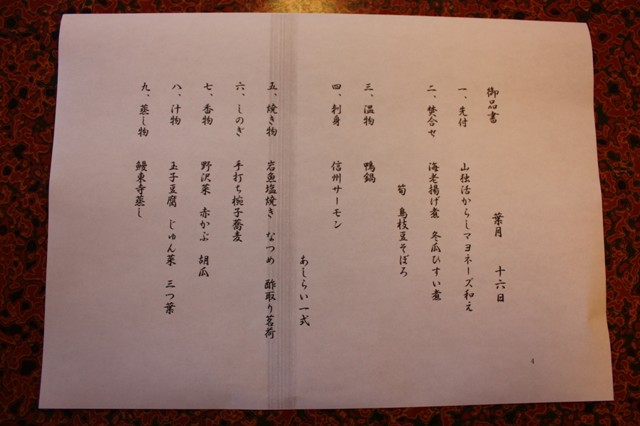 御品書
葉月 十六日
一、先付 山独活からしマヨネーズ和え
二、焚合せ 海老揚げ煮 冬瓜ひすい煮
筍 鳥枝豆そぼろ
三、温物 鴨鍋
四、刺身 信州サーモン
あしらい一式
五、焼き物 岩魚塩焼き なつめ 酢取り茗荷
六、しのぎ 手打ち椀子蕎麦
七、香物 野沢菜 赤かぶ 胡瓜
八、汁物 玉子豆腐 じゅん菜 三つ葉
九、蒸し物 鰻東寺蒸し
4